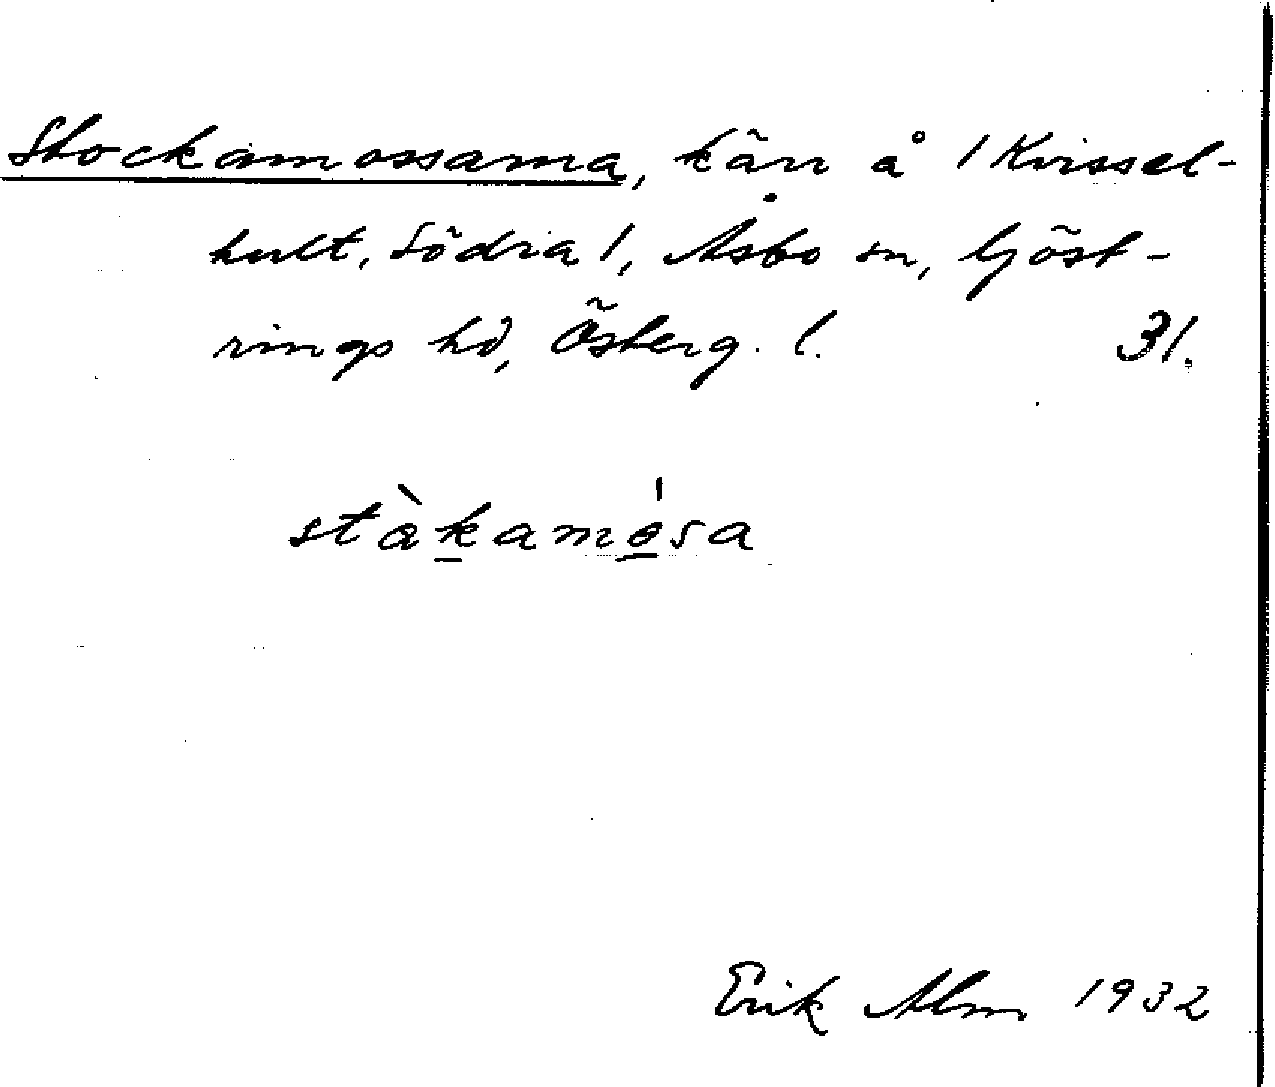 Stockamossarna, kärr å /Kvissel-
hult, Södra/, Åsbo sn, Göst-
rings hd, Österg. l. 31.
stàkamósa
Erik Alm 1932